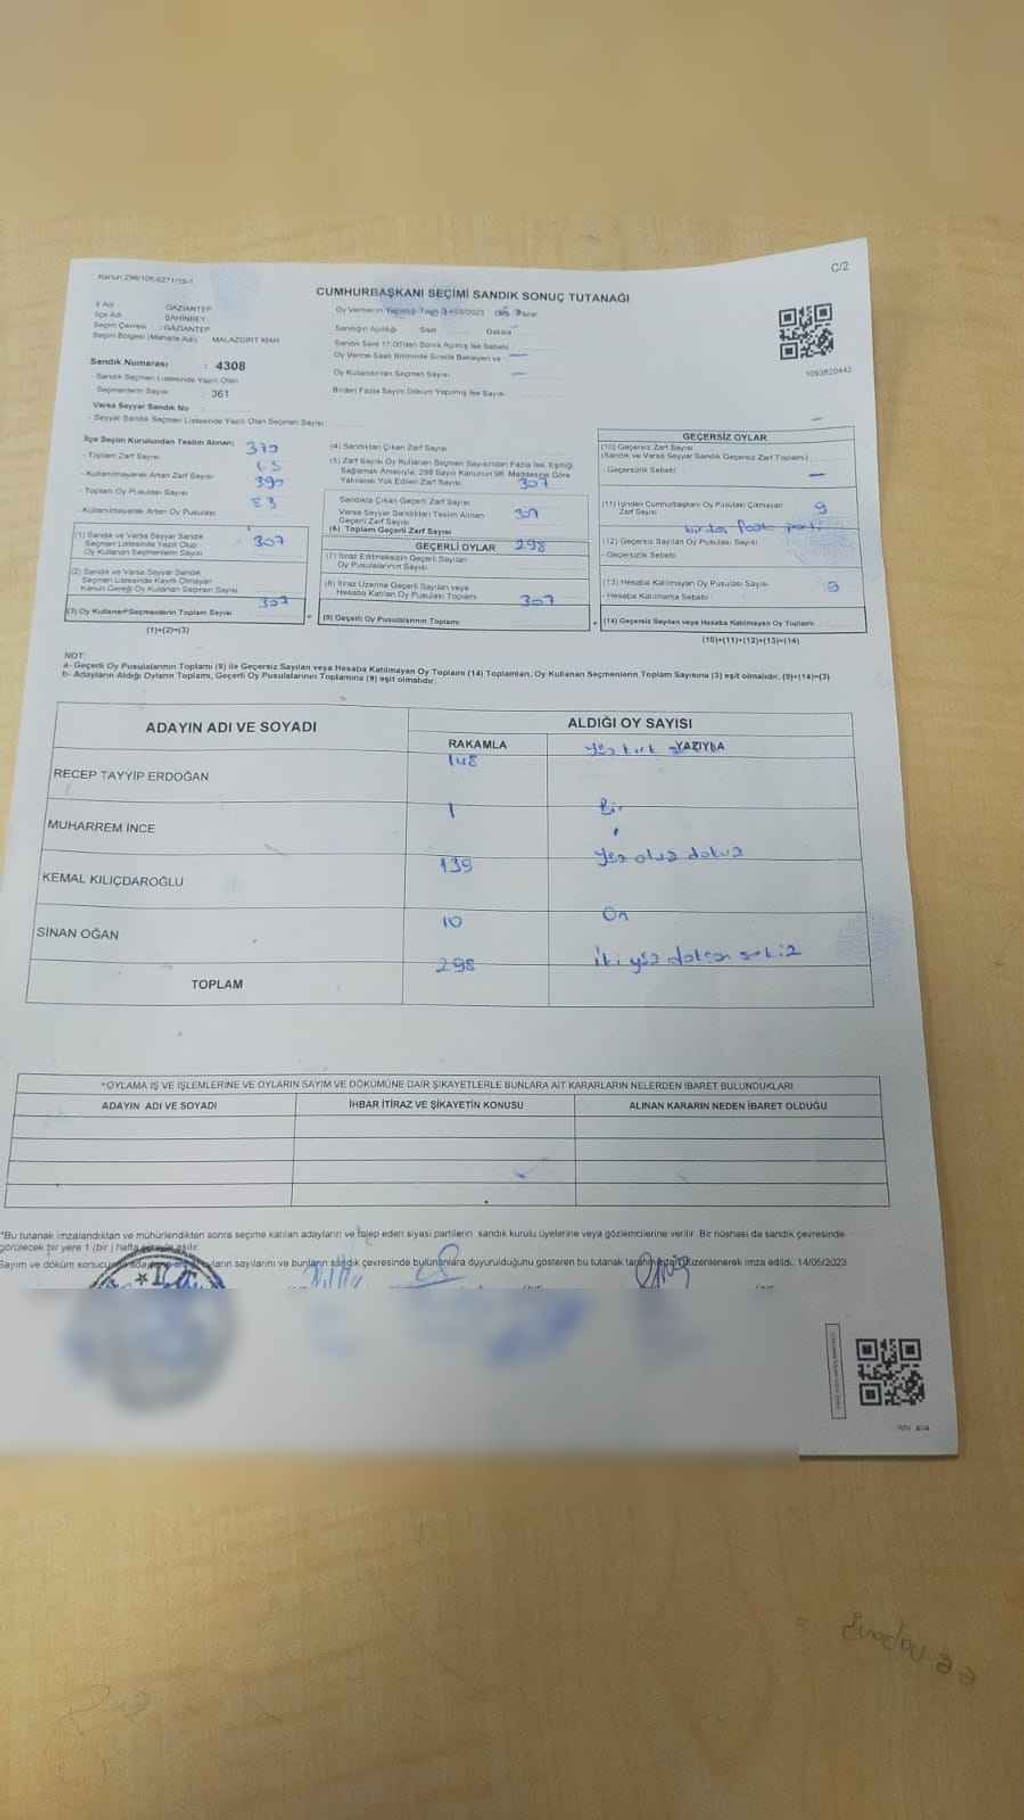 C/2
CUMHURBAŞKANI SEÇİMİ SANDIK SONUÇ TUTANAĞI
İl Adı : GAZİANTEP
İlçe Adı : ŞAHİNBEY
Seçim Çevresi : GAZİANTEP
Seçim Bölgesi (Mahalle Adı) : MALAZGİRT MAH
Sandık Numarası : 4308
- Sandık Seçmen Listesinde Yazılı Olan
Seçmenlerin Sayısı : 361
Varsa Seyyar Sandık No
- Seyyar Sandık Seçmen Listesinde Yazılı Olan Seçmen Sayısı
Oy Vermenin Yapıldığı Tarih
Sandığın Açıldığı Saat Dakika
Sandık Saat 17.00'den Sonra Açılmış İse Sebebi
Oy Verme Saati Bitiminde Sırada Bekleyen ve
Oy Kullandırılan Seçmen Sayısı
Birden Fazla Sayım Döküm Yapılmış İse Sayısı
1093820442
İlçe Seçim Kurulundan Teslim Alınan;
- Toplam Zarf Sayısı
- Kullanılmayarak Artan Zarf Sayısı
- Toplam Oy Pusulası Sayısı
- Kullanılmayarak Artan Oy Pusulası
(1) Sandık ve Varsa Seyyar Sandık
Seçmen Listesinde Yazılı Olup
Oy Kullanan Seçmenlerin Sayısı
307
(2) Sandık ve Varsa Seyyar Sandık
Seçmen Listesinde Kayıtlı Olmayan
Kanun Gereği Oy Kullanan Seçmen Sayısı
307
(3) Oy Kullanan Seçmenlerin Toplam Sayısı
(1)+(2)=(3)
(4) Sandıktan Çıkan Zarf Sayısı
(5) Zarf Sayısı Oy Kullanan Seçmen Sayısından Fazla İse, Eşitliği
Sağlamak Amacıyla, 298 Sayılı Kanunun 98. Maddesine Göre
Yakılarak Yok Edilen Zarf Sayısı
307
Sandıkta Çıkan Geçerli Zarf Sayısı
Varsa Seyyar Sandıktan Teslim Alınan
Geçerli Zarf Sayısı
307
(6) Toplam Geçerli Zarf Sayısı
GEÇERLİ OYLAR 298
(7) İtiraz Edilmeksizin Geçerli Sayılan
Oy Pusulalarının Sayısı
(8) İtiraz Üzerine Geçerli Sayılan veya
Hesaba Katılan Oy Pusulası Toplamı
307
(9) Geçerli Oy Pusulalarının Toplamı
GEÇERSİZ OYLAR
(10) Geçersiz Zarf Sayısı
(Sandık ve Varsa Seyyar Sandık Geçersiz Zarf Toplamı)
- Geçersizlik Sebebi
(11) İçinden Cumhurbaşkanı Oy Pusulası Çıkmayan
Zarf Sayısı
9
(12) Geçersiz Sayılan Oy Pusulası Sayısı
- Geçersizlik Sebebi
(13) Hesaba Katılmayan Oy Pusulası Sayısı
9
- Hesaba Katılmama Sebebi
(14) Geçersiz Sayılan veya Hesaba Katılmayan Oy Toplamı
(10)+(11)+(12)+(13)=(14)
NOT:
a- Geçerli Oy Pusulalarının Toplamı (9) ile Geçersiz Sayılan veya Hesaba Katılmayan Oy Toplamı (14) Toplamları, Oy Kullanan Seçmenlerin Toplam Sayısına (3) eşit olmalıdır. (9)+(14)=(3)
b- Adayların Aldığı Oyların Toplamı, Geçerli Oy Pusulalarının Toplamına (9) eşit olmalıdır.
ADAYIN ADI VE SOYADI
ALDIĞI OY SAYISI
RAKAMLA YAZIYLA
148 yüz kırk
RECEP TAYYİP ERDOĞAN
1 Bir
MUHARREM İNCE
139 yüz otuz dokuz
KEMAL KILIÇDAROĞLU
10 On
SİNAN OĞAN
298 iki yüz doksan sekiz
TOPLAM
*OYLAMA İŞ VE İŞLEMLERİNE VE OYLARIN SAYIM VE DÖKÜMÜNE DAİR ŞİKAYETLERLE BUNLARA AİT KARARLARIN NELERDEN İBARET BULUNDUKLARI
ADAYIN ADI VE SOYADI İHBAR İTİRAZ VE ŞİKAYETİN KONUSU ALINAN KARARIN NEDEN İBARET OLDUĞU
*Bu tutanak imzalandıktan ve mühürlendikten sonra seçime katılan adayların ve talep eden siyasi partilerin sandık kurulu üyelerine veya gözlemcilerine verilir. Bir nüshası da sandık çevresinde
görülecek bir yere 1 (bir) hafta
Sayım ve döküm sonucu sayılarını ve bunların sandık çevresinde bulunanlara duyurulduğunu gösteren bu tutanak düzenlenerek imza edildi. 14/05/2023